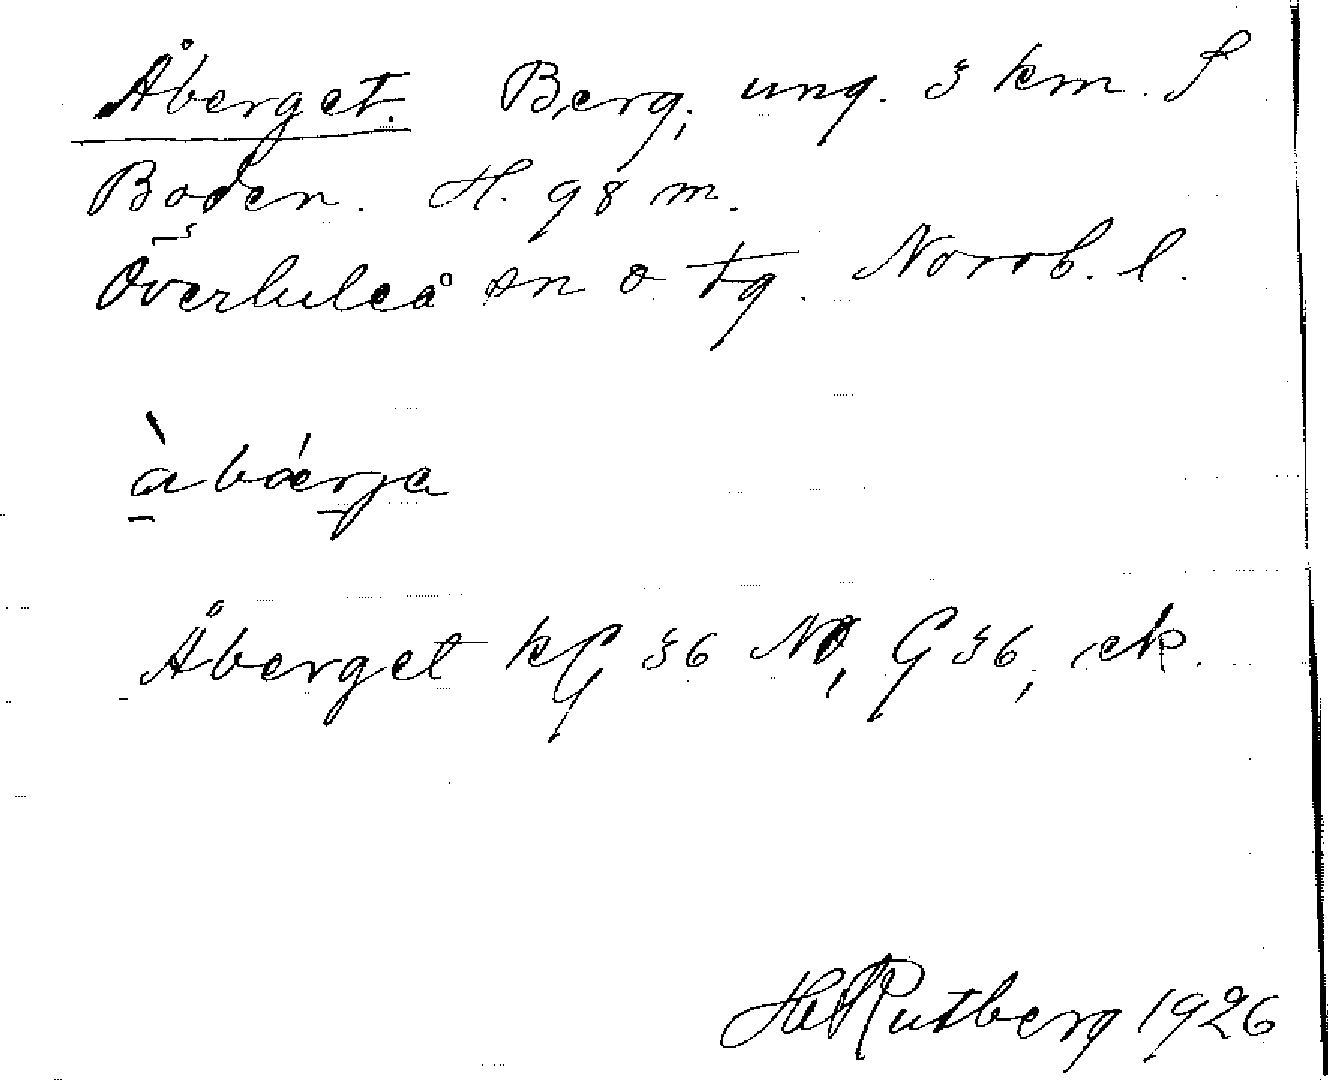 Åberget. Berg, ung. 3 km. S
Boden. H. 98 m.
Överluleå sn o tg. Norrb. l.
àbǽrja
Åberget kG 36 NO, G 36, ek.
H Rutberg 1926